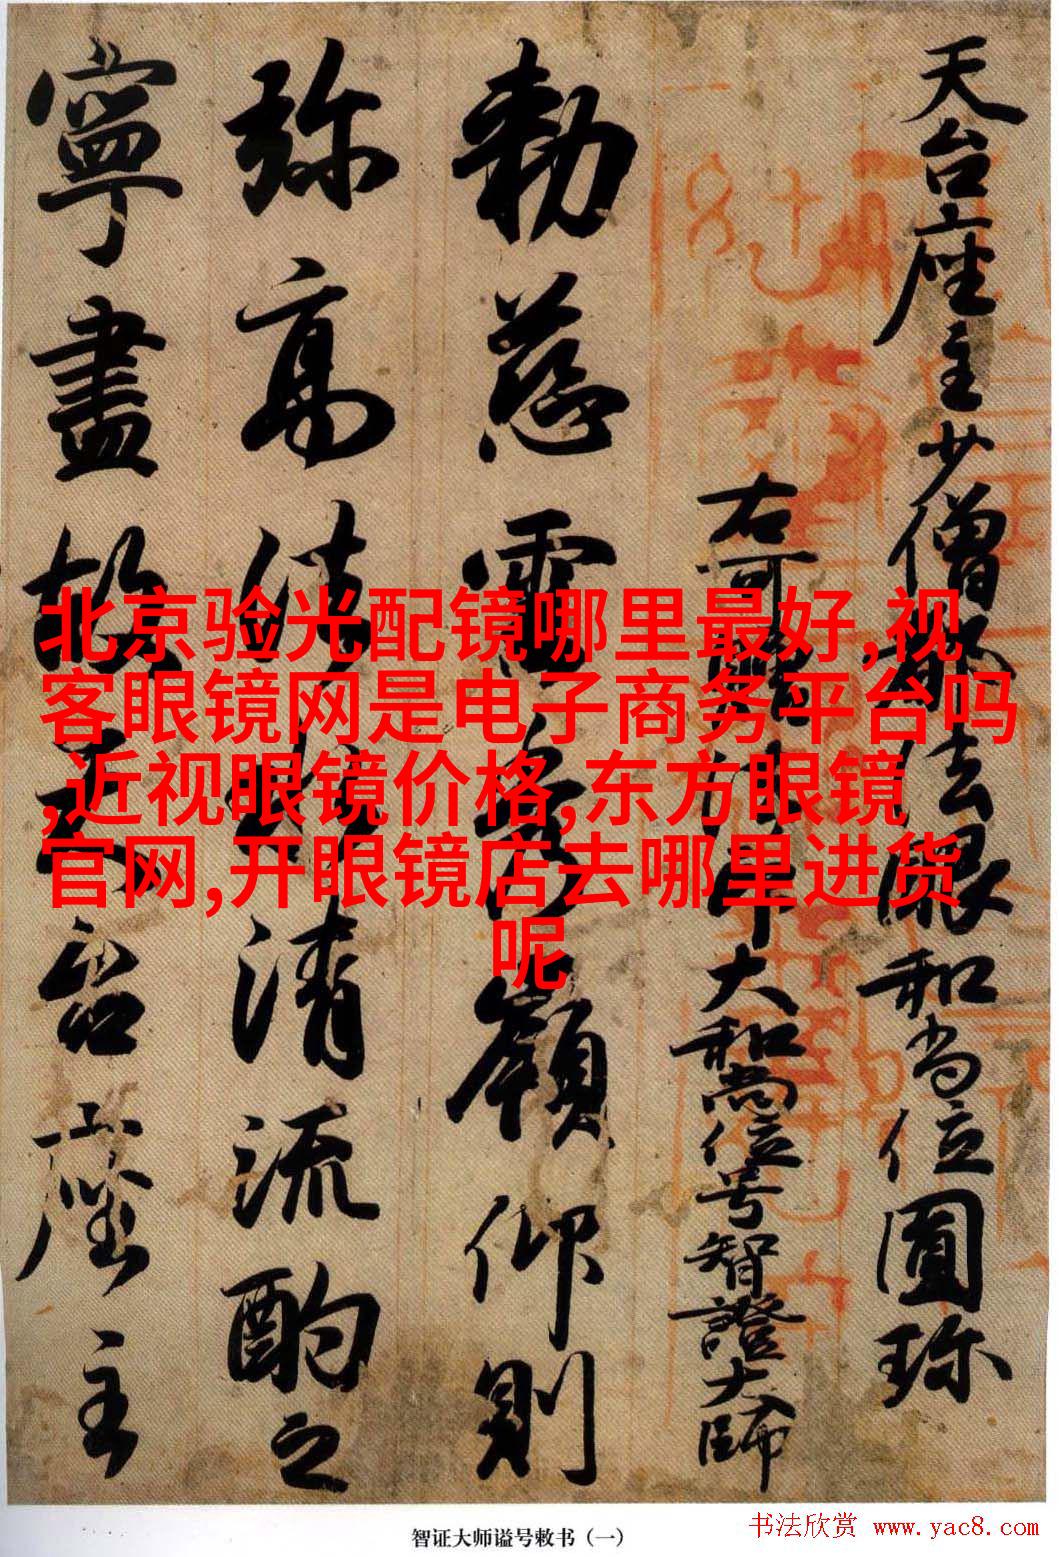 天台座主少僧都法眼和尚位圓珎
右可贈法印大和尚位号智證大師
勅慈雲秀嶺仰則
弥高清流酌之
寧盡故天台座主
北京验光配镜哪里最好,视
客眼镜网是电子商务平台吗
,近视眼镜价格,东方眼镜
官网,开眼镜店去哪里进货
呢
智证大师谥号敕书（一）
书法欣赏 www.yac8.com